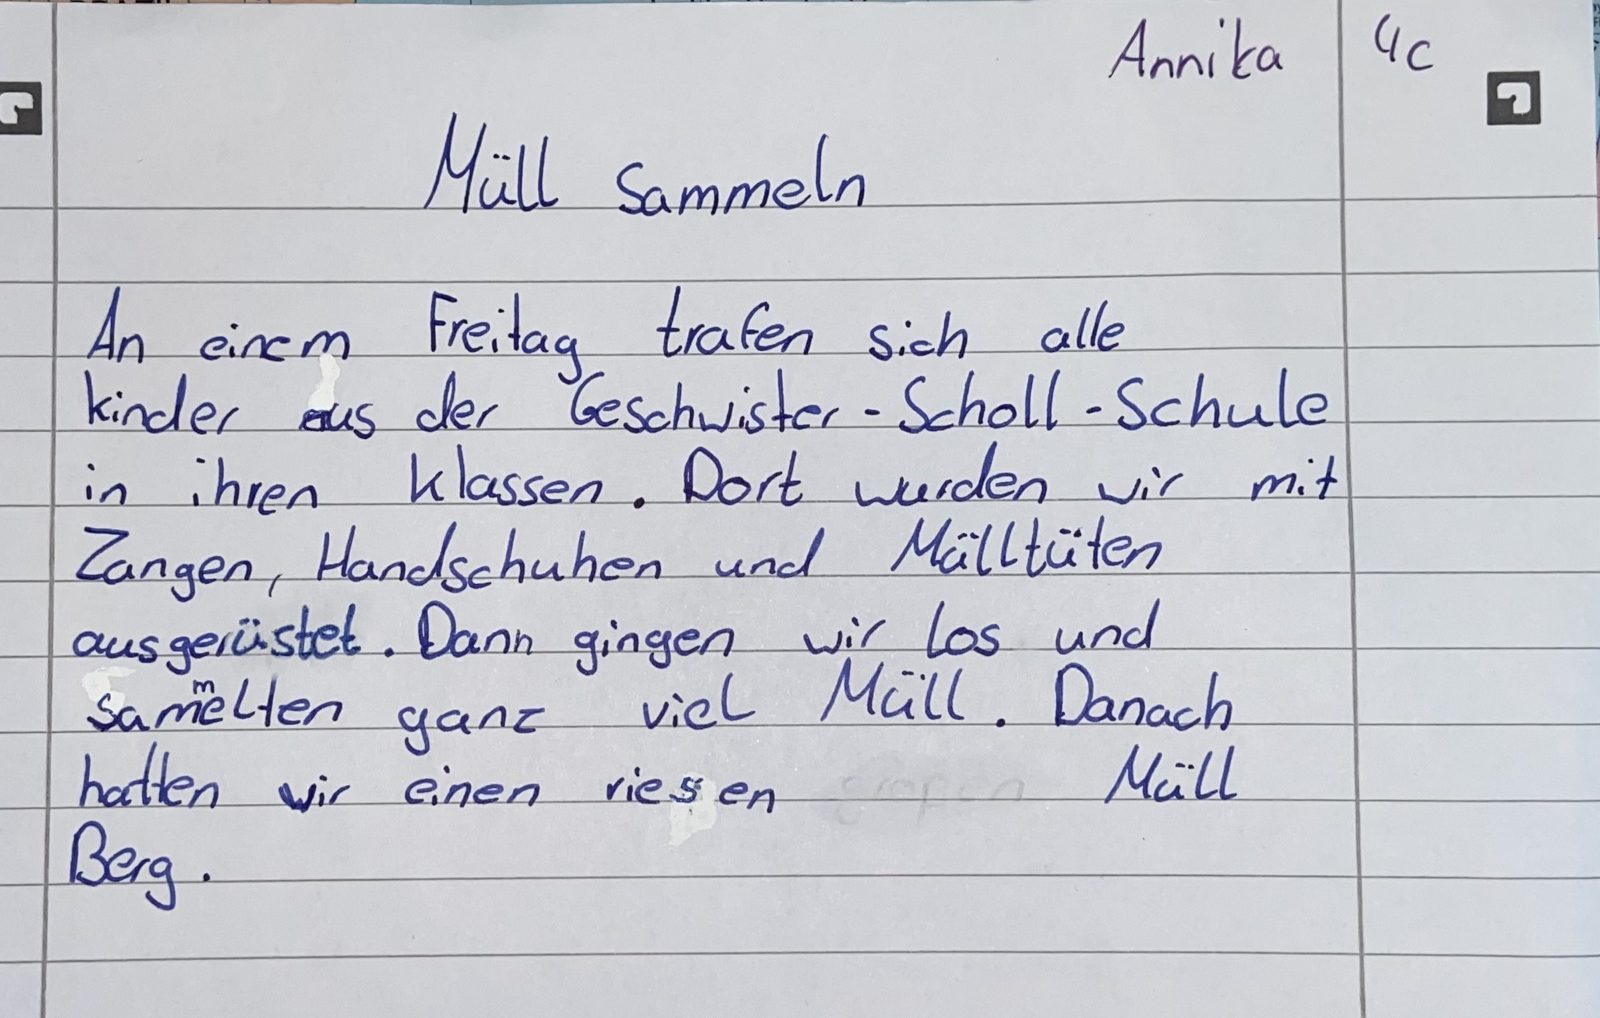 Annika 4c
Müll sammeln
An einem Freitag trafen sich alle
kinder aus der Geschwister-Scholl-Schule
in ihren klassen. Dort wurden wir mit
Zangen, Handschuhen und Mülltüten
ausgerüstet. Dann gingen wir los und
sammelten ganz viel Müll. Danach
hatten wir einen riesen Müll
Berg.